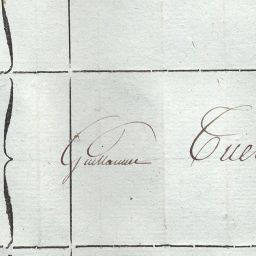 Guillaume Tuer